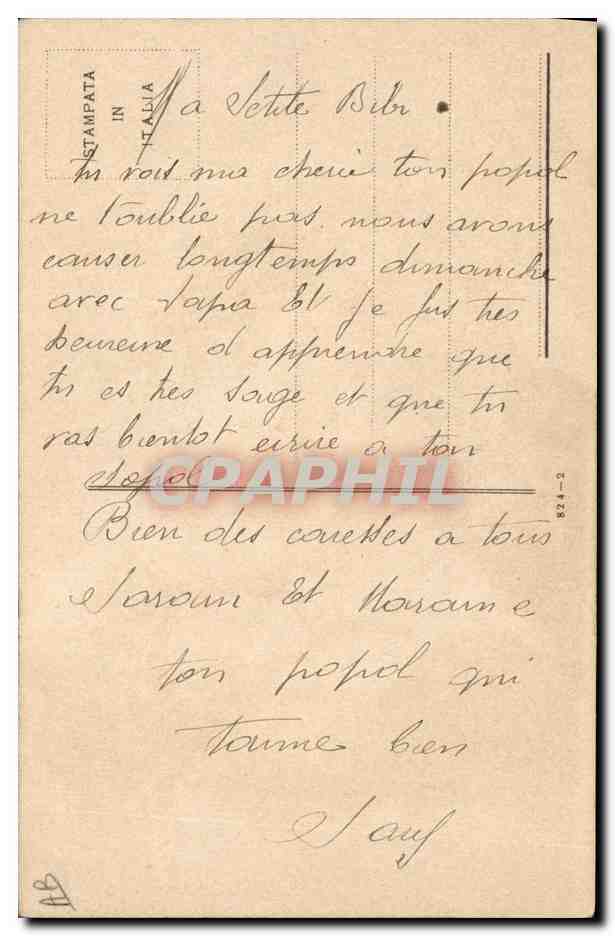 STAMPATA
IN
ITALIA
Ma Petite Bibi
tu vois ma cherie ton popol
ne t'oublie pas. nous avons
causer longtemps dimanche
avec Papa Et je fus tres
heureuse d apprendre que
tu es tres sage et que tu
vas bientot ecrire a ton
popol
CPAPHIL
824-2
Bien des caresses a tous
Parain Et Maraine
ton popol qui
t'aime bien
Paul
AB